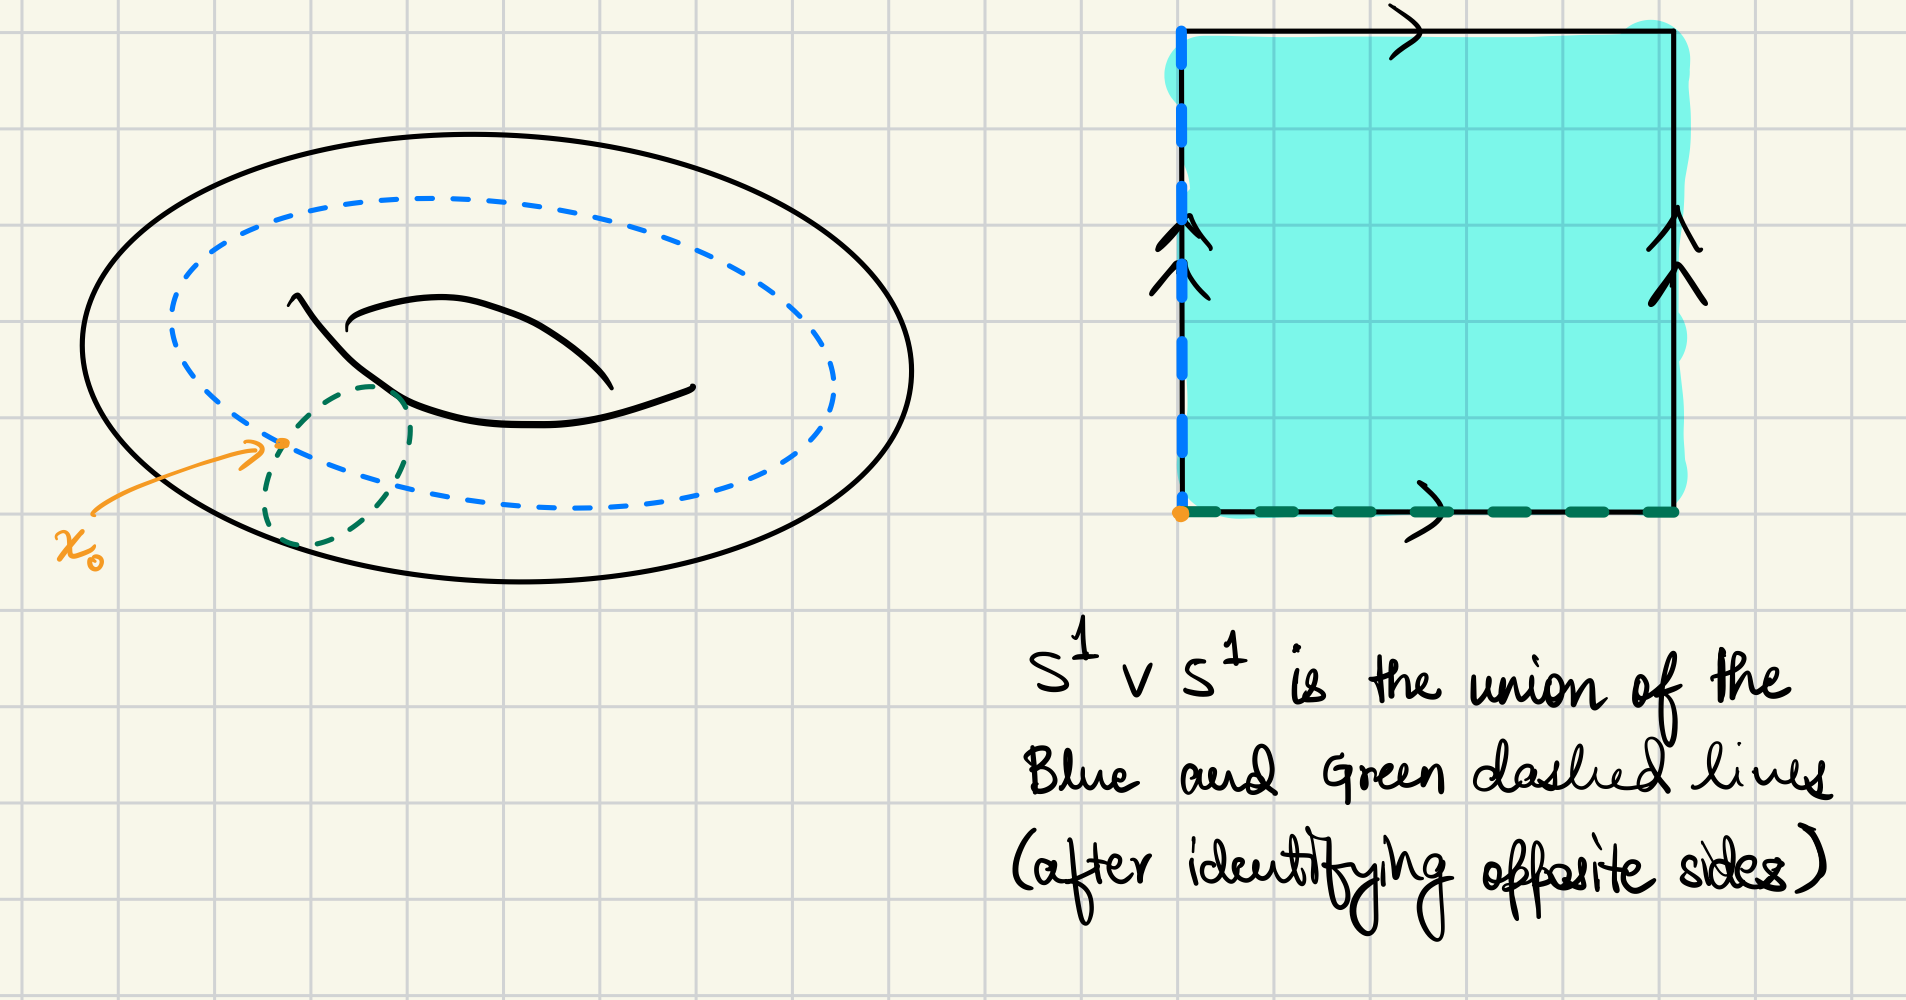 x₀
S¹ ∨ S¹ is the union of the
Blue and Green dashed lines
(after identifying opposite sides)